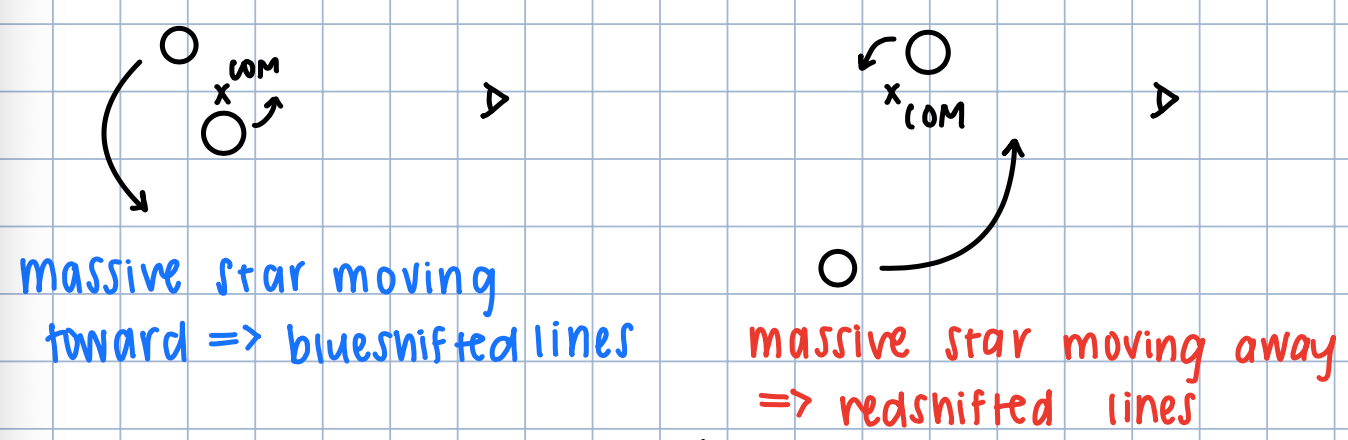 COM
x
massive star moving
toward => blueshifted lines
x
COM
massive star moving away
=> redshifted lines